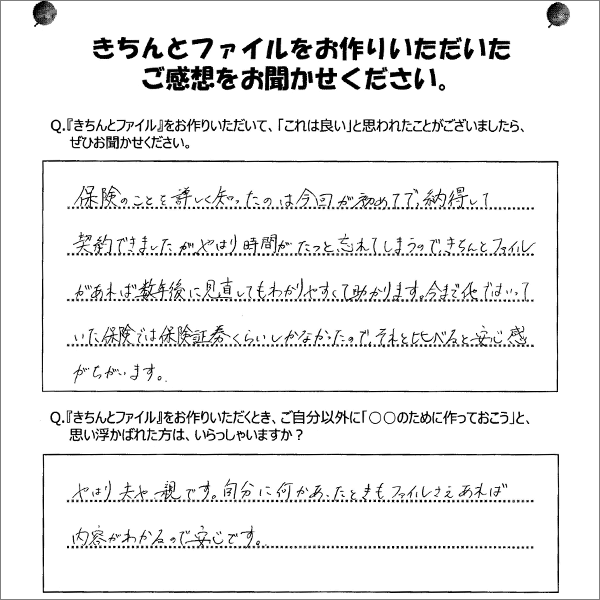 きちんとファイルをお作りいただいた
ご感想をお聞かせください。
Q.『きちんとファイル』をお作りいただいて、「これは良い」と思われたことがございましたら、
ぜひお聞かせください。
保険のことを詳しく知ったのは今回が初めてで、納得して
契約できましたがやはり時間がたっと忘れてしまうので、きちんとファイル
があれば数年後に見直してもわかりやすくて助かります。今まで他ではいって
いた保険では保険証券くらいしかなかったので、それと比べると安心感
がちがいます。
Q.『きちんとファイル』をお作りいただくとき、ご自分以外に「○○のために作っておこう」と、
思い浮かばれた方は、いらっしゃいますか？
やはり夫や親です。自分に何かあったときもファイルさえあれば
内容がわかるので安心です。